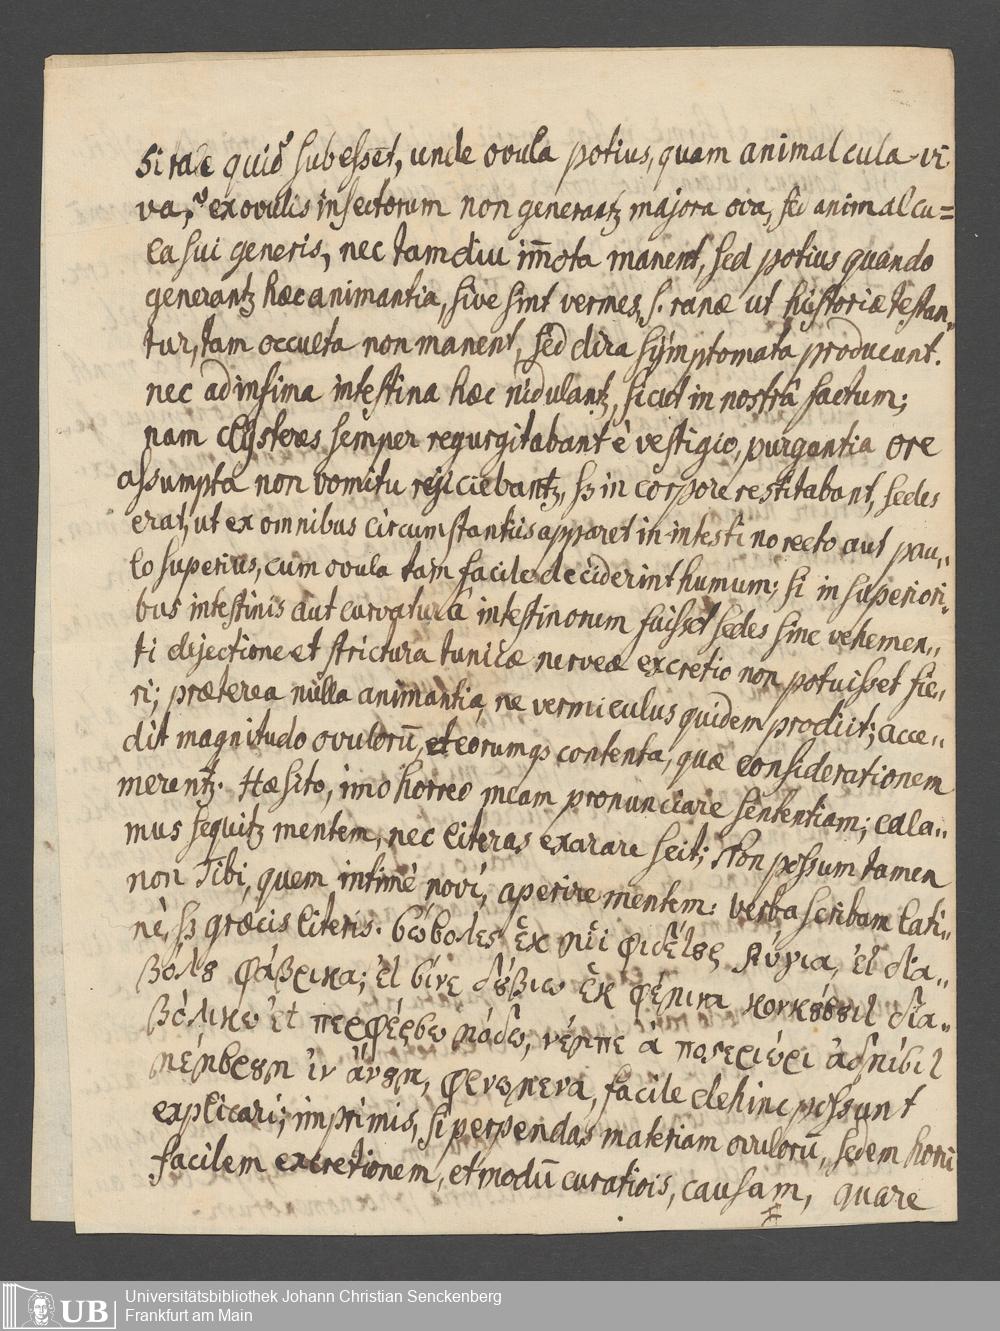 si tale quid subesset, unde ovula potius, quam animalcula vi-
va, ex ovulis insectorum non generantz majora ova, sed animalcu=
la sui generis, nec tamdiu im̄ota manent, sed potius quando
generantz hæc animantia, sive sint vermes, s. ranæ ut historiæ testan„
tur, tam occulta non manent, sed dira symptomata producunt.
nec ad infima intestina hæc nidulantz, sicut in nostrâ factum;
nam clysteres semper regurgitabant è vestigio, purgantia ore
assumpta non vomitu rejiciebantz, sz in corpore restitabant, sedes
erat, ut ex omnibus circumstantiis apparet in intestino recto aut pau„
lo superius, cum ovula tam facile deciderint humum; si in superiori„
bus intestinis aut curvaturâ intestinorum fuisset sedes sine vehemen„
ti dejectione et strictura tunicæ nerveæ excretio non potuisset fie„
ri; præterea nulla animantia, ne vermiculus quidem prodiit; acce„
dit magnitudo ovulorū, et eorumqs contenta, quæ considerationem
merentz. Hæsito, imo horreo meam pronunciare sententiam; cala„
mus sequitz mentem, nec literas exarare scit; Non possum tamen
non Tibi, quem intimè novi, aperire mentem: verba scribam lati„
nè, sz græcis literis.
φάβρικα; φέμινα
βόλικω ἐτ
ἰν φενωμενα, facile dehinc possunt
explicari; imprimis, si perpendas materiam ovulorū, sedem horū
facilem excretionem, et modū curatiois, causam, quare
Universitätsbibliothek Johann Christian Senckenberg
UB Frankfurt am Main